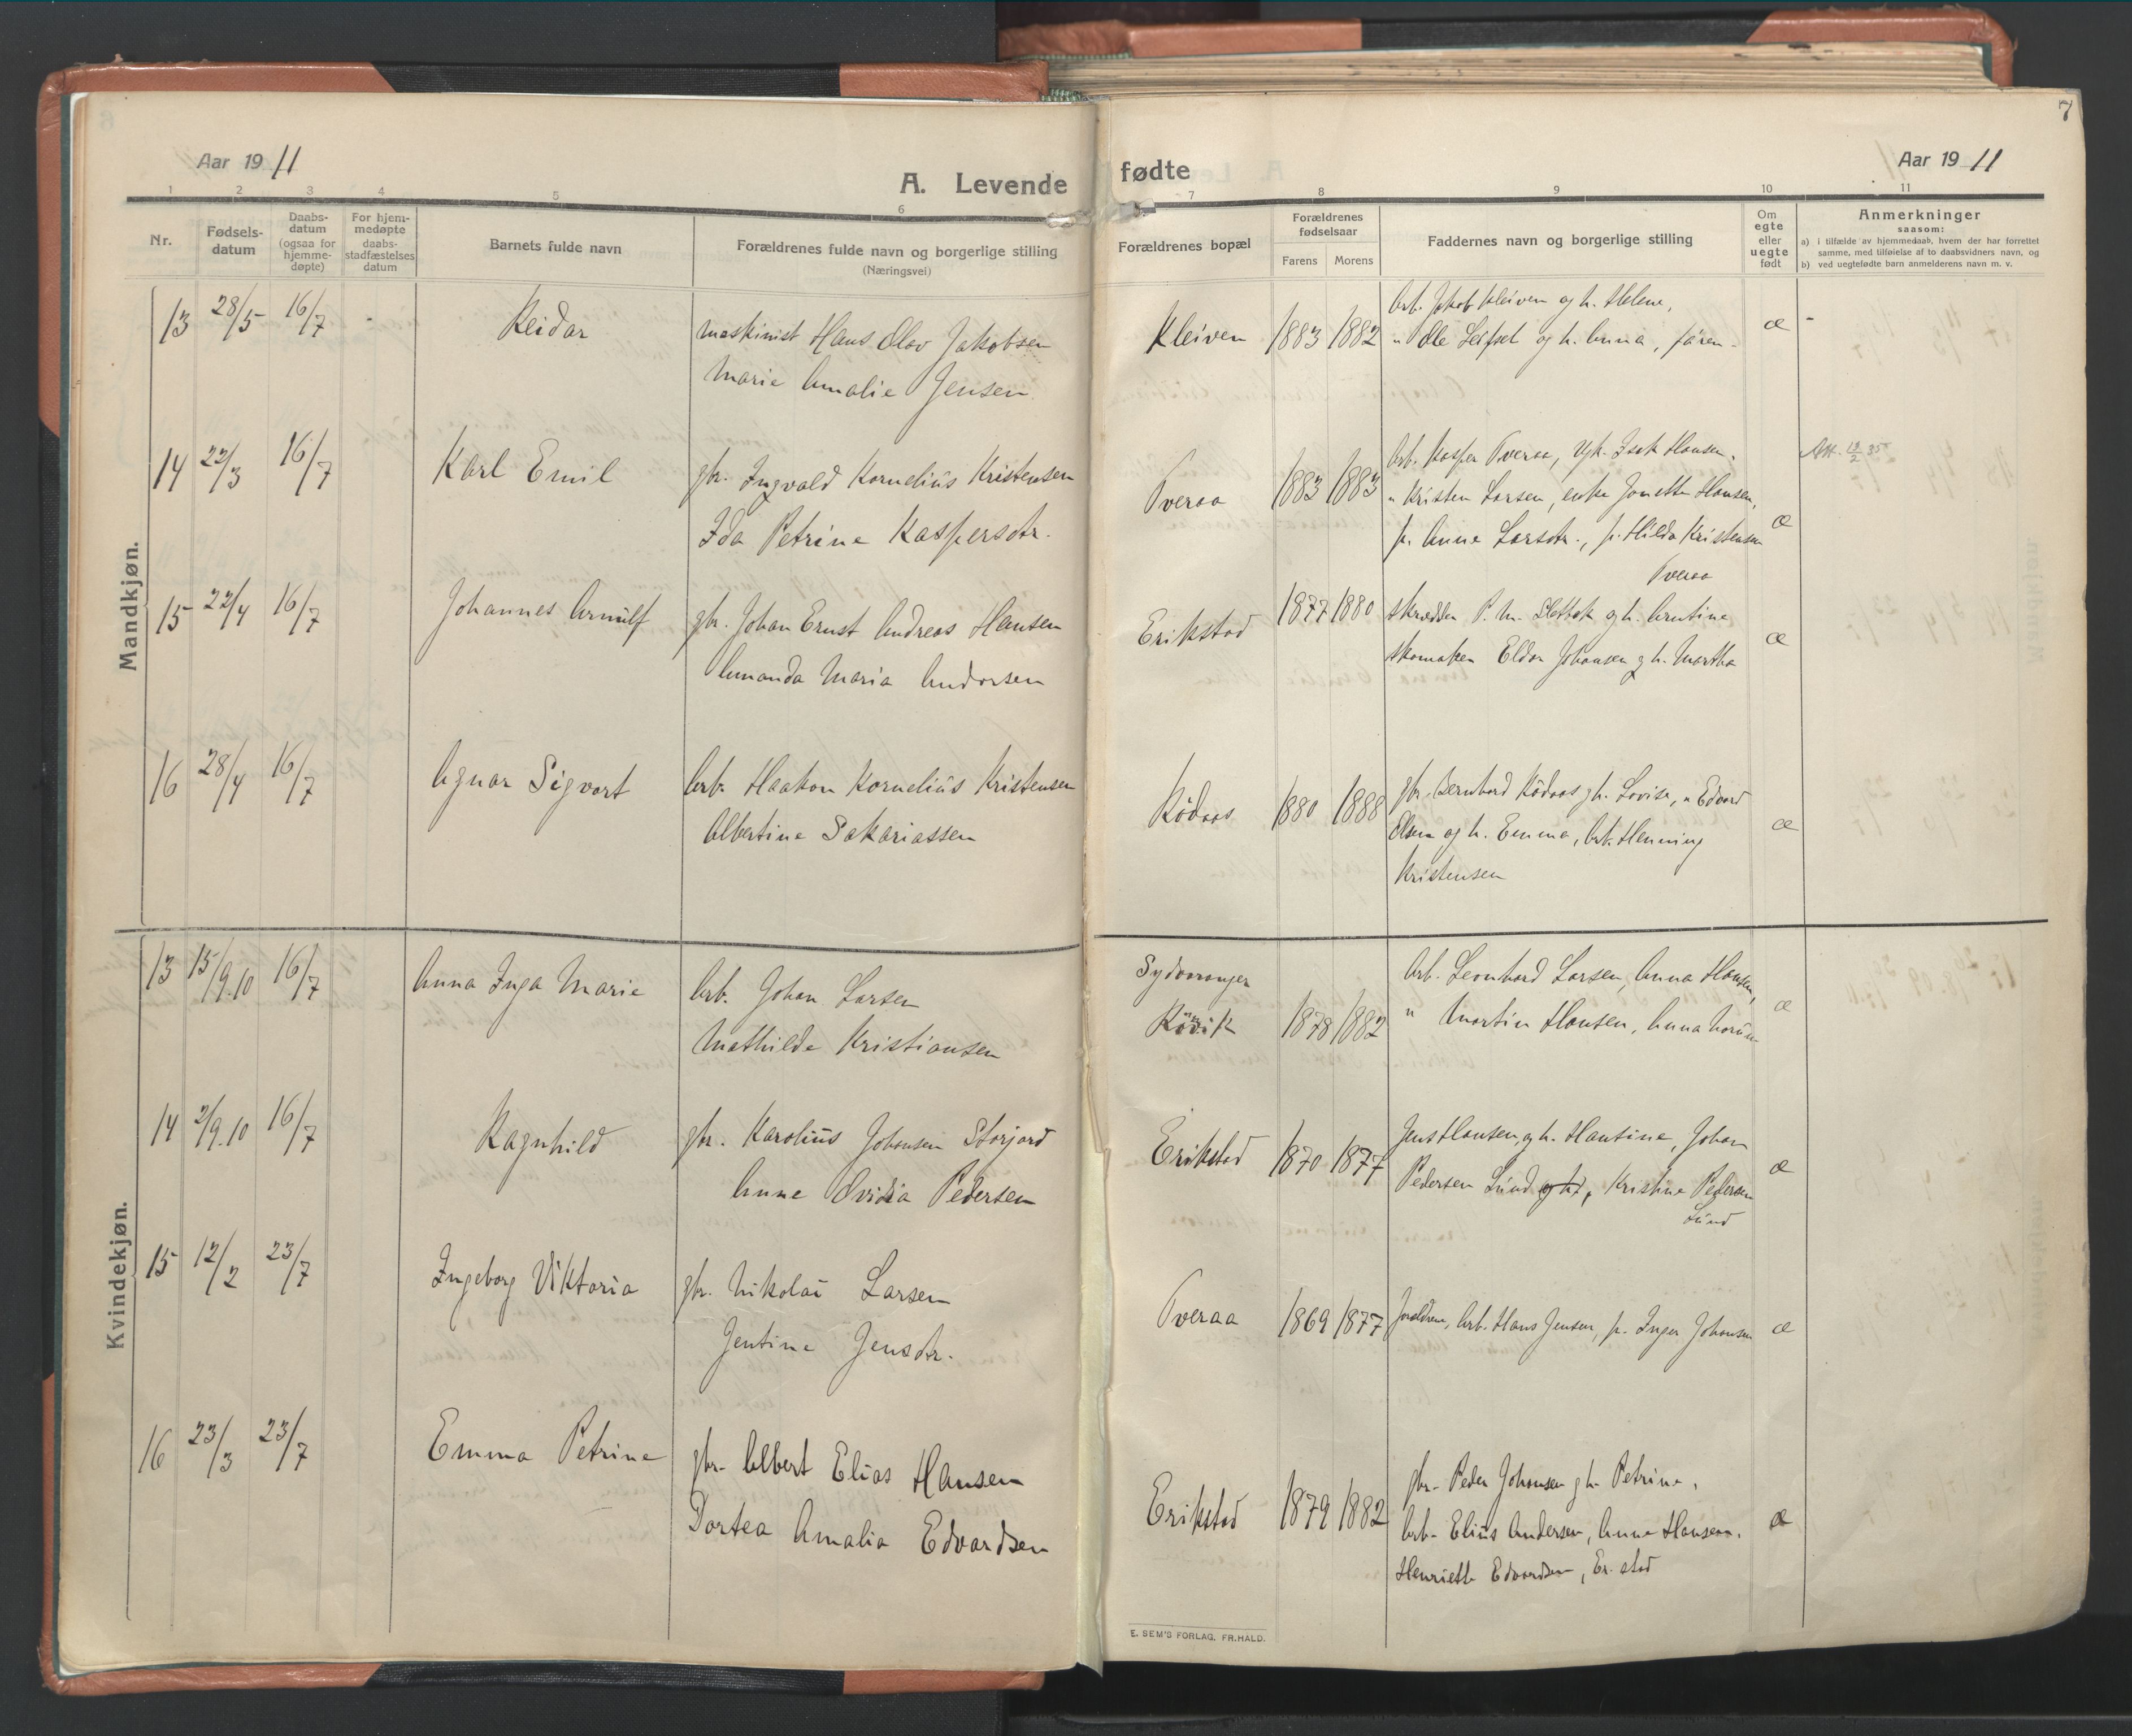 7
Aar 19 11
A. Levende fødte
Aar 19 11
1 2 3 4 5 6 7 8 9 10 11
Nr.
Fødsels-
datum
Daabs-
datum
(ogsaa for
hjemme-
døpte)
For hjem-
medøpte
daabs-
stadfæstelses
datum
Barnets fulde navn
Forældrenes fulde navn og borgerlige stilling
(Næringsvei)
Forældrenes bopæl
Forældrenes
fødselsaar
Farens Morens
Faddernes navn og borgerlige stilling
Om
egte
eller
uegte
født
Anmerkninger
saasom:
a) i tilfælde av hjemmedaab, hvem der har forrettet
samme, med tilføielse af to daabsvidners navn, og
b) ved uegtefødte barn anmelderens navn m. v.
Mandkjøn.
13 28/5 16/7 - Reidar
maskinist Hans Olav Jakobsen
Marie Amalie Jensen
Kleiven 1883 1882
Arb. Jakob Kleiven og h. Helene,
" Ole Leifset og h. Anna,
æ -
14 22/3 16/7 Karl Emil
gbr. Ingvald Kornelius Kristensen
Ida Petrine Kaspersdtr.
Tveraa 1883 1883
Arb. Kasper Tveraa, Isak Hansen,
" Kristen Larsen, enke Jonette Hansen,
p. Anne Larsdtr., p. Hilda Kristensen
Tveraa
æ
Att. 12/2 35
15 22/4 16/7 Johannes Arnulf
gbr. Johan Ernst Andreas Hansen
Amanda Maria Andorsen
Erikstad 1877 1880
skrædder P. M. og h. Arntine
skomaker Eldor Johansen og h. Martha
æ
16 28/4 16/7 Agnar Sigvart
Arb. Haakon Kornelius Kristensen
Albertine Sakariassen
Rödaas 1880 1888
gbr. Bernhard Rödaas og h. Lovise, " Edvard
Olsen og h. Emma, Arb. Henning
Kristensen
æ
Kvindekjøn.
13 15/9.10 16/7 Anna Inga Marie
Arb. Johan Larsen
Mathilde Kristiansen
Sydvaranger
1878 1882
Arb. Leonhard Larsen, Anna Hansen,
" Martin Hansen, Anna
æ
14 2/9.10 16/7 Ragnhild
gbr. Karolius Johansen Storjord
Anne Ovidia Pedersen
Erikstad 1870 1877
Jens Hansen og h. Hantine, Johan
Pedersen Lund og h., Kristine Pedersen
Lund
æ
15 12/2 23/7 Ingeborg Viktoria
gbr. Nikolai Larsen
Jentine Jensdtr.
Tveraa 1869 1877
Forældrene, Arb. Hans Jensen, p. Inger Johansen
æ
16 23/3 23/7 Emma Petrine
gbr. Albert Elias Hansen
Dortea Amalia Edvardsen
Erikstad 1879 1882
gbr. Peder Johansen og h. Petrine,
Arb. Elius Andersen, Anne Hansen,
Henriette Edvardsen, Er.stad
æ
E. SEM'S FORLAG, FR.HALD.